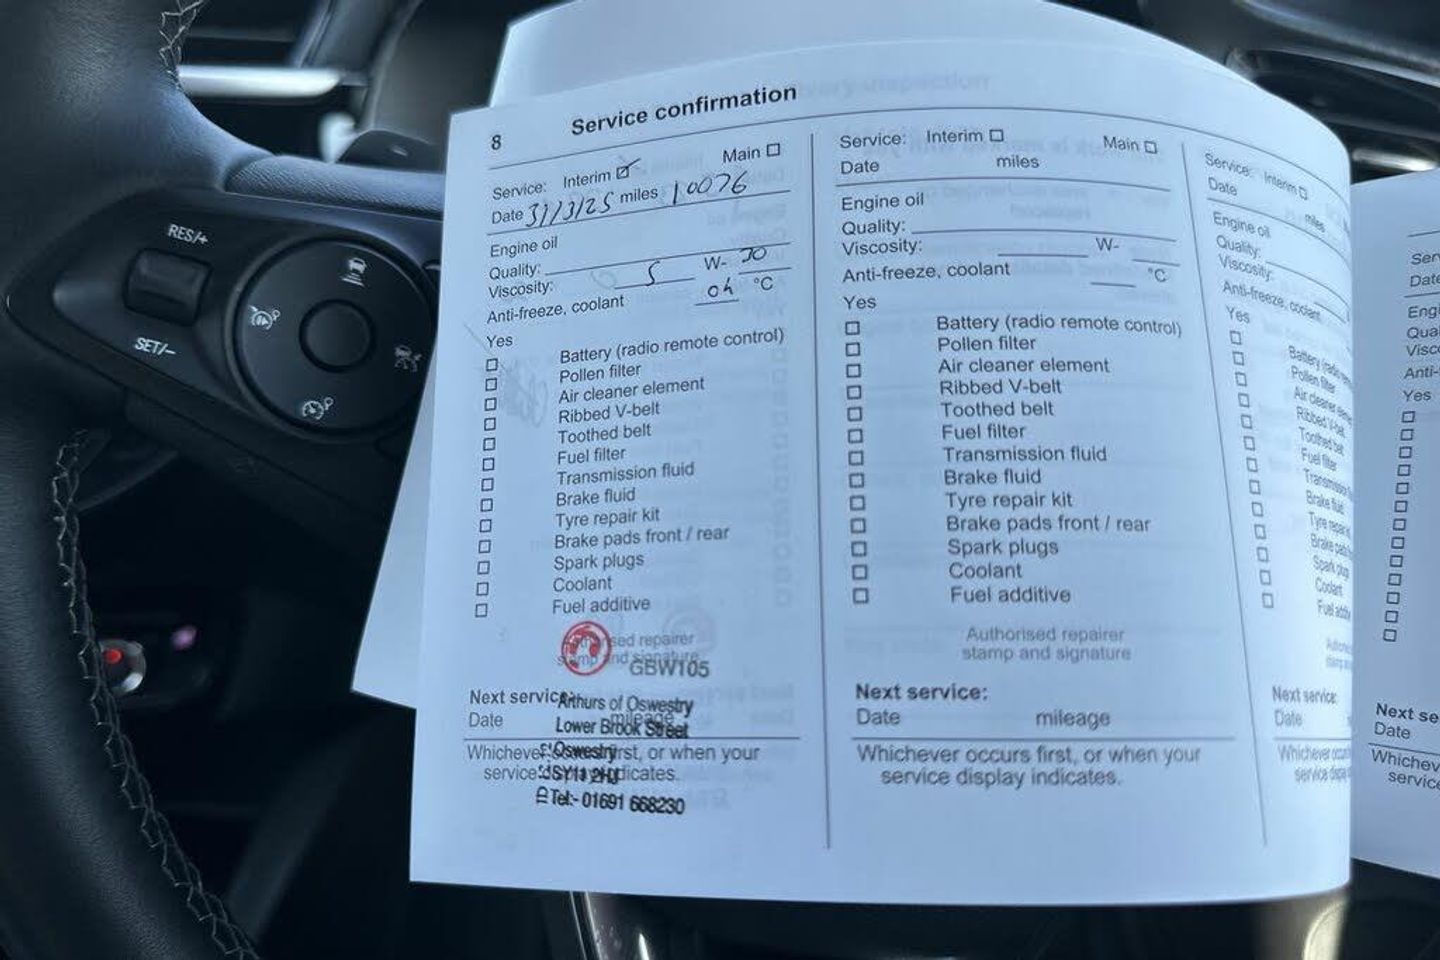 RES/+
SET/-
8 Service confirmation
Service: Interim ☑ Main ☐
Date 31/3/25 miles 10076
Engine oil
Quality:
Viscosity: 5 W- 30
Anti-freeze, coolant °C
Yes
☐ Battery (radio remote control)
☐ Pollen filter
☐ Air cleaner element
☐ Ribbed V-belt
☐ Toothed belt
☐ Fuel filter
☐ Transmission fluid
☐ Brake fluid
☐ Tyre repair kit
☐ Brake pads front / rear
☐ Spark plugs
☐ Coolant
☐ Fuel additive
repairer
stamp and signature
GBW105
Next service:
Arthurs of Oswestry
Date mileage
Lower Brook Street
Oswestry
Whichever first, or when your
SY11 2HJ
service indicates.
Tel:- 01691 668230
Service: Interim ☐ Main ☐
Date miles
Engine oil
Quality:
Viscosity: W-
Anti-freeze, coolant °C
Yes
☐ Battery (radio remote control)
☐ Pollen filter
☐ Air cleaner element
☐ Ribbed V-belt
☐ Toothed belt
☐ Fuel filter
☐ Transmission fluid
☐ Brake fluid
☐ Tyre repair kit
☐ Brake pads front / rear
☐ Spark plugs
☐ Coolant
☐ Fuel additive
Authorised repairer
stamp and signature
Next service:
Date mileage
Whichever occurs first, or when your
service display indicates.
Service: Interim ☐
Date miles
Engine oil
Quality:
Viscosity:
Anti-freeze, coolant
Yes
☐ Battery (radio
☐ Pollen filter
☐ Air cleaner
☐ Ribbed V-belt
☐ Toothed belt
☐ Fuel filter
☐
☐ Brake fluid
☐ Tyre repair
☐ Brake pads
☐ Spark plug
☐ Coolant
☐ Fuel
Next service:
Date
Whichever
service
Yes
Next se
Date
Whichev
service